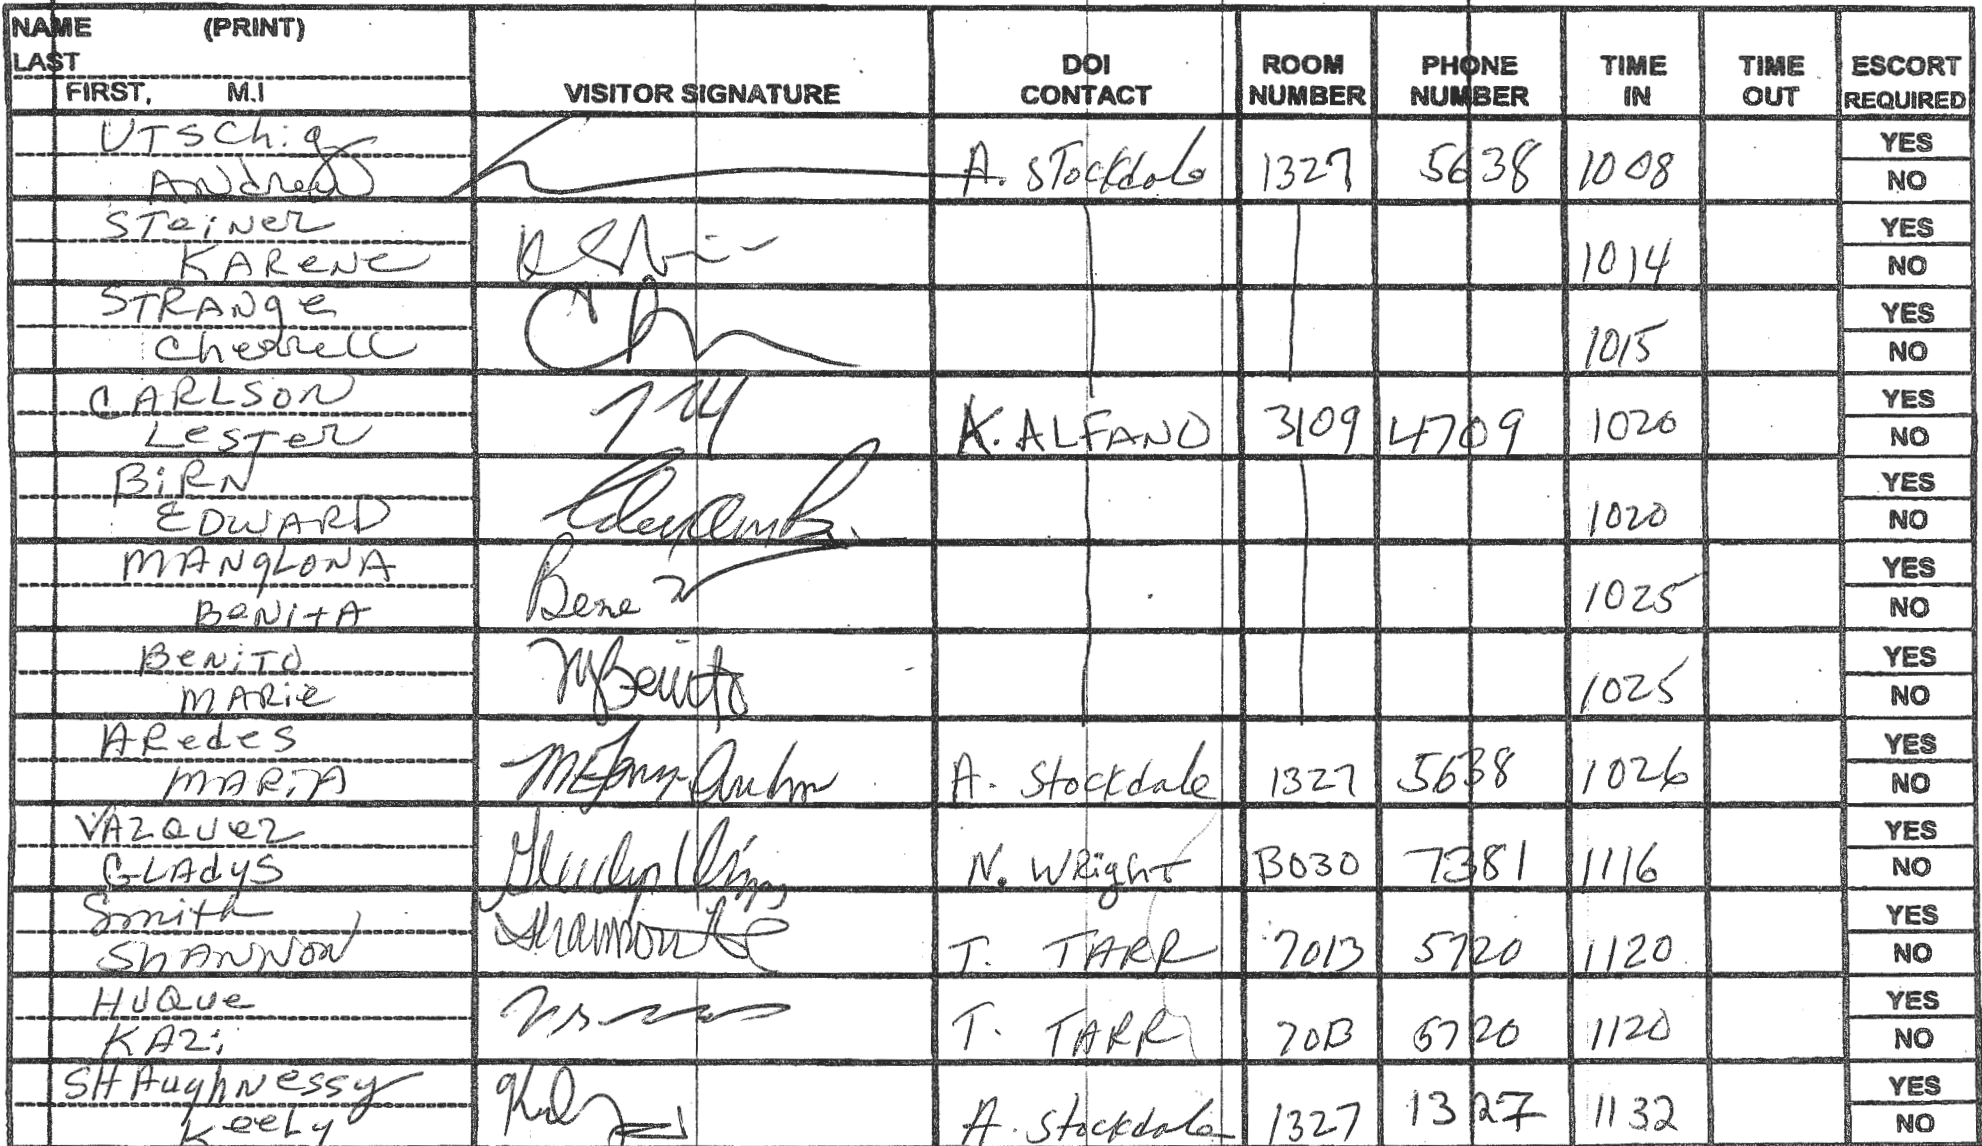 NAME (PRINT)
LAST
FIRST, M.I
VISITOR SIGNATURE
DOI CONTACT
ROOM NUMBER
PHONE NUMBER
TIME IN
TIME OUT
ESCORT REQUIRED
UTSChig
ANdrew
A. STockdale 1327 5638 1008 YES NO
STeiNer
KAReNe
1014 YES NO
STRANge
Cherrell
1015 YES NO
CARLSON
LeSTer
K. ALFANO 3109 4709 1020 YES NO
BiRN
EDWARD
1020 YES NO
MANgLONA
BeNitA
1025 YES NO
BeNiTO
MARie
MBenito
1025 YES NO
ARedes
MARIA
A. Stockdale 1327 5638 1026 YES NO
VAZQUez
GLAdyS
N. WRight B030 7381 1116 YES NO
Smith
ShANNON
T. TARR 701B 5720 1120 YES NO
HUQUe
KAZi
T. TARR 70B 5720 1120 YES NO
SHAughNessy
KeeLy
A. Stockdale 1327 1327 1132 YES NO